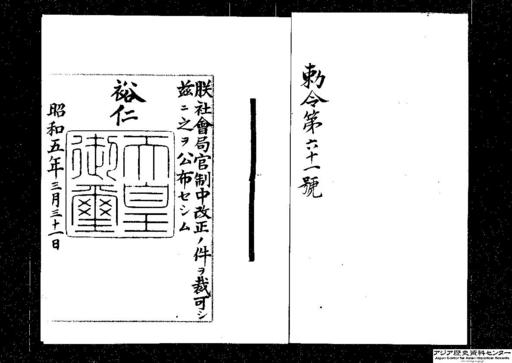 勅令第六十一號
朕社會局官制中改正ノ件ヲ裁可シ
茲ニ之ヲ公布セシム
裕仁
天皇
御璽
昭和五年三月三十一日
アジア歴史資料センター
Japan Center for Asian Historical Records